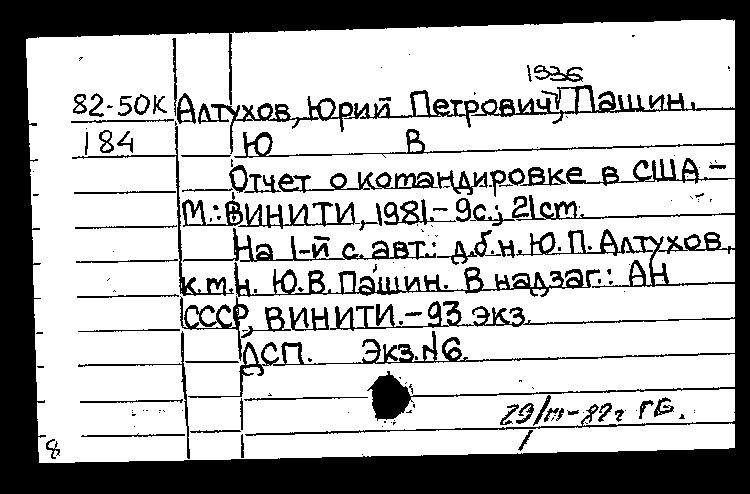 1936
82-50К Алтухов, Юрий Петрович, Пашин.
184 Ю В
Отчет о командировке в США.-
М.: ВИНИТИ, 1981.- 9с.; 21см.
На 1-й с. авт.: д.б.н. Ю.П. Алтухов,
к.т.н. Ю.В. Пашин. В надзаг.: АН
СССР, ВИНИТИ.- 93 экз.
ДСП. Экз.№6.
29/III-82г ГБ.
8